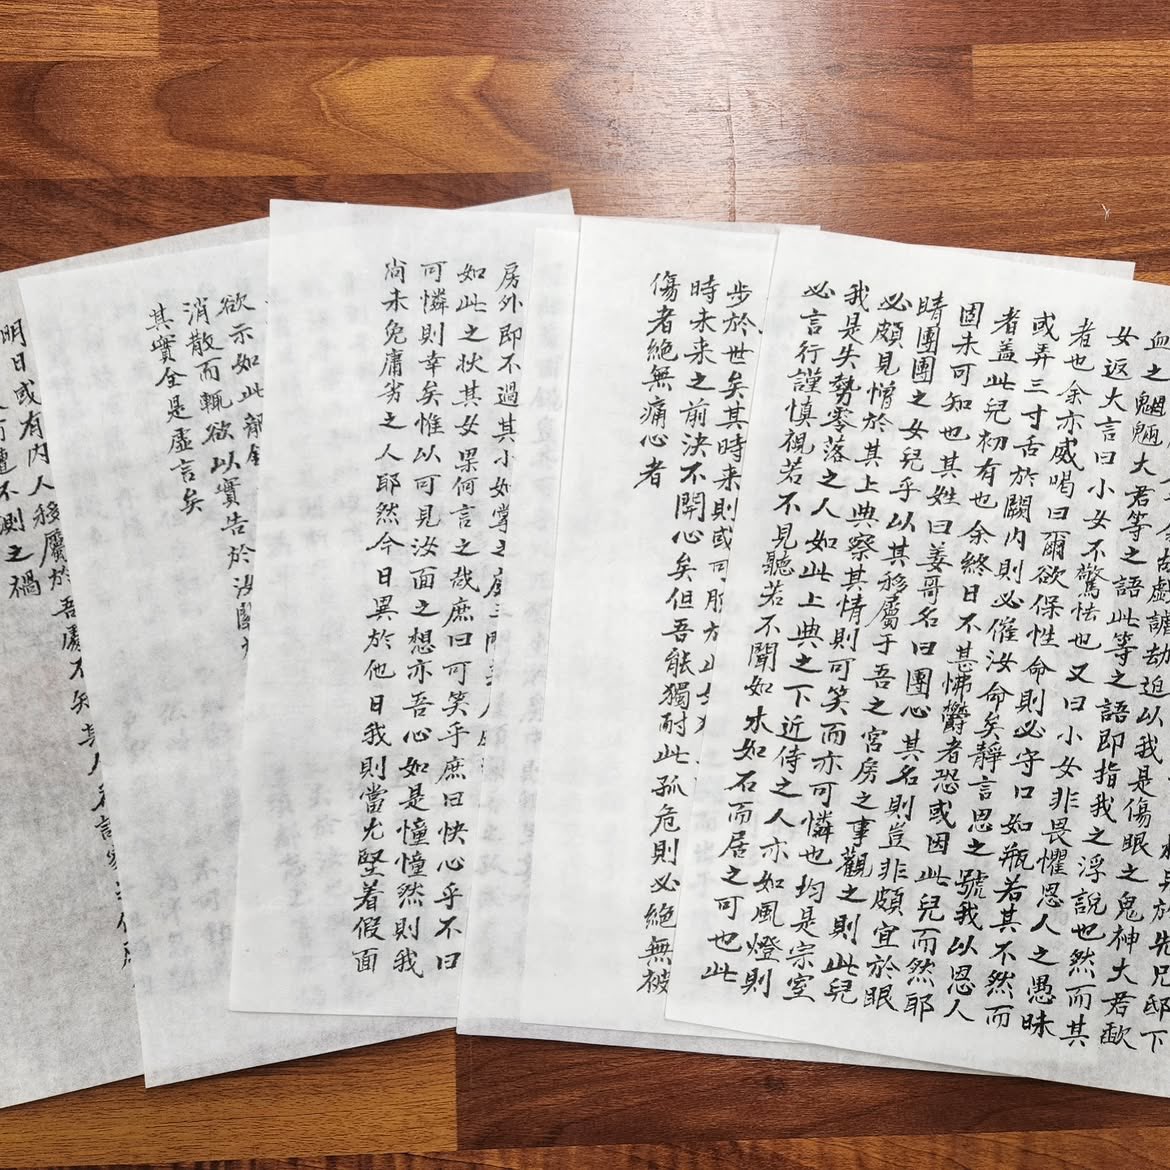 血之魍魎大君等之語此等之語即指我之浮說也然而其
女返大言曰小女不驚怯也又曰小女非畏懼恩人之愚昧
者也余亦威喝曰爾欲保性命則必守口如瓶若其不然而
或弄三寸舌於闕內則必催汝命矣靜言思之號我以恩人
者盖此兒初有也余終日不甚怫鬱者恐或因此兒而然耶
固未可知也其姓曰姜哥名曰團心其名則豈非頗宜於眼
睛團團之女兒乎以其移屬于吾之宮房之事觀之則此兒
必頗見憎於其上典察其情則可笑而亦可憐也均是宗室
我是失勢零落之人如此上典之下近侍之人亦如風燈則
必言行謹慎視若不見聽若不聞如木如石而居之可也此
步於世矣其時來則或可
時未来之前決不開心矣但吾能獨耐此孤危則必絕無被
傷者絕無痛心者
房外即不過其小如掌之
如此之狀其女果何言之哉庶曰可笑乎庶曰快心乎不曰
可憐則幸矣惟以可見汝面之想亦吾心如是憧憧然則我
尚未免庸劣之人耶然今日異於他日我則當尤堅着假面
欲示如此
消散而輒欲以實告於汝
其實全是虛言矣
明日或有內人移屬於吾處不知其人
不測之禍